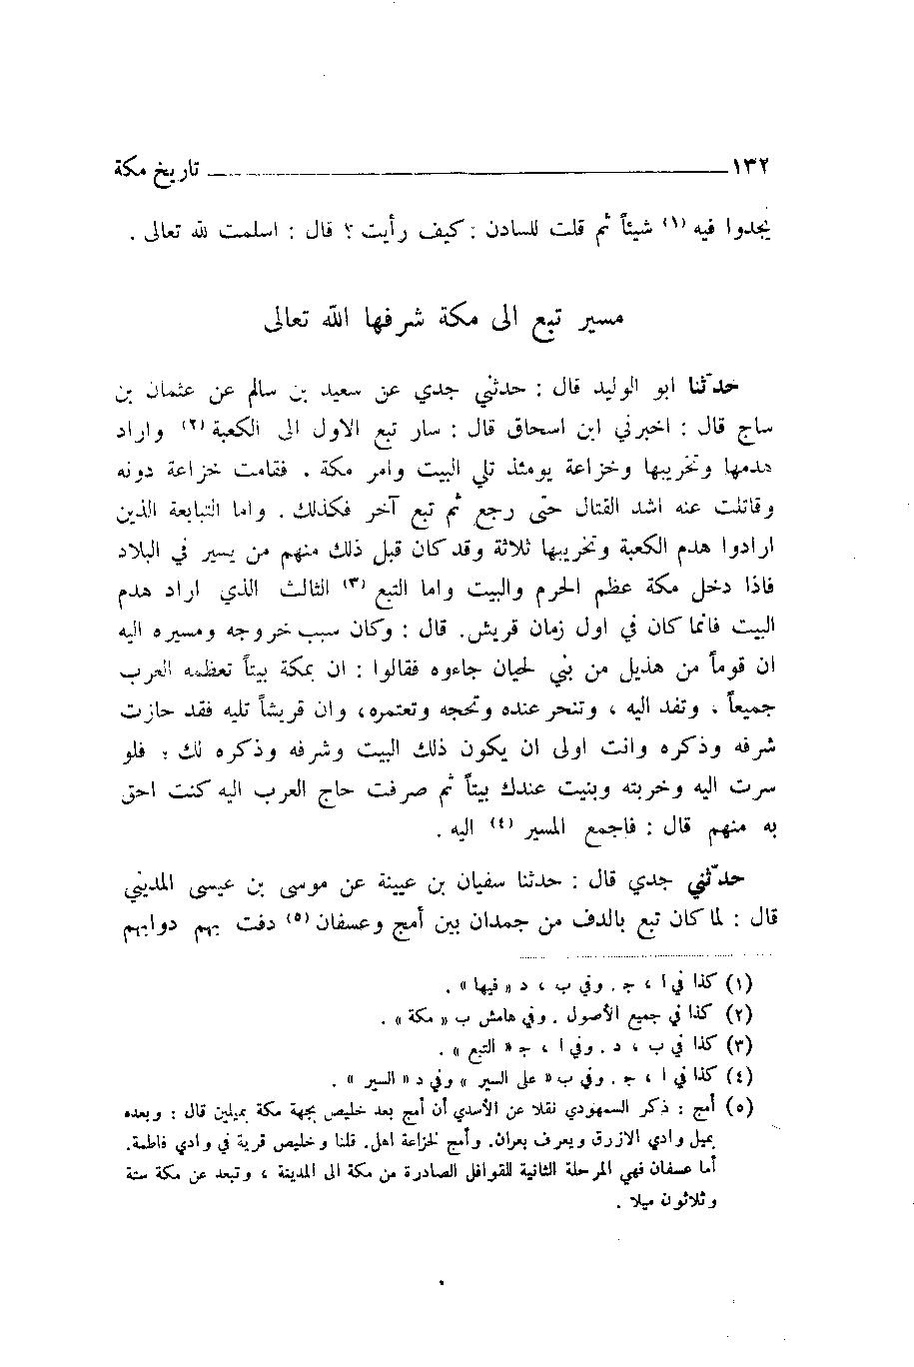 ١٣٢ تاريخ مكة
يجدوا فيه (١) شيئاً ثم قلت للسادن : كيف رأيت ؟ قال : اسلمت لله تعالى .
مسير تبع الى مكة شرفها الله تعالى
حدّثنا ابو الوليد قال : حدثني جدي عن سعيد بن سالم عن عثمان بن
ساج قال : اخبرني ابن اسحاق قال : سار تبع الاول الى الكعبة (٢) واراد
هدمها وتخريبها وخزاعة يومئذ تلي البيت وامر مكة . فقامت خزاعة دونه
وقاتلت عنه اشد القتال حتى رجع ثم تبع آخر فكذلك . واما التبابعة الذين
ارادوا هدم الكعبة وتخريبها ثلاثة وقد كان قبل ذلك منهم من يسير في البلاد
فاذا دخل مكة عظم الحرم والبيت واما التبع (٣) الثالث الذي اراد هدم
البيت فانما كان في اول زمان قريش. قال : وكان سبب خروجه ومسيره اليه
ان قوماً من هذيل من بني لحيان جاءوه فقالوا : ان بمكة بيتاً تعظمه العرب
جميعاً ، وتفد اليه ، وتنحر عنده وتحجه وتعتمره، وان قريشاً تليه فقد حازت
شرفه وذكره وانت اولى ان يكون ذلك البيت وشرفه وذكره لك ؛ فلو
سرت اليه وخربته وبنيت عندك بيتاً ثم صرفت حاج العرب اليه كنت احق
به منهم قال : فاجمع المسير (٤) اليه .
حدّثني جدي قال : حدثنا سفيان بن عيينة عن موسى بن عيسى المديني
قال : لما كان تبع بالدف من جمدان بين أمج وعسفان (٥) دفت بهم دوابهم
(١) كذا في ا ، ج . وفي ب ، د « فيها » .
(٢) كذا في جميع الأصول . وفي هامش ب « مكة » .
(٣) كذا في ب ، د . وفي ا ، ج « التبع » .
(٤) كذا في ا ، ج . وفي ب « على السير » وفي د « السير » .
(٥) أمج : ذكر السمهودي نقلا عن الأسدي أن أمج بعد خليص بجهة مكة بميلين قال : وبعده
بميل وادي الازرق ويعرف بعران. وأمج لخزاعة اهل. قلنا وخليص قرية في وادي فاطمة.
أما عسفان فهي المرحلة الثانية للقوافل الصادرة من مكة الى المدينة ، وتبعد عن مكة ستة
وثلاثون ميلا .